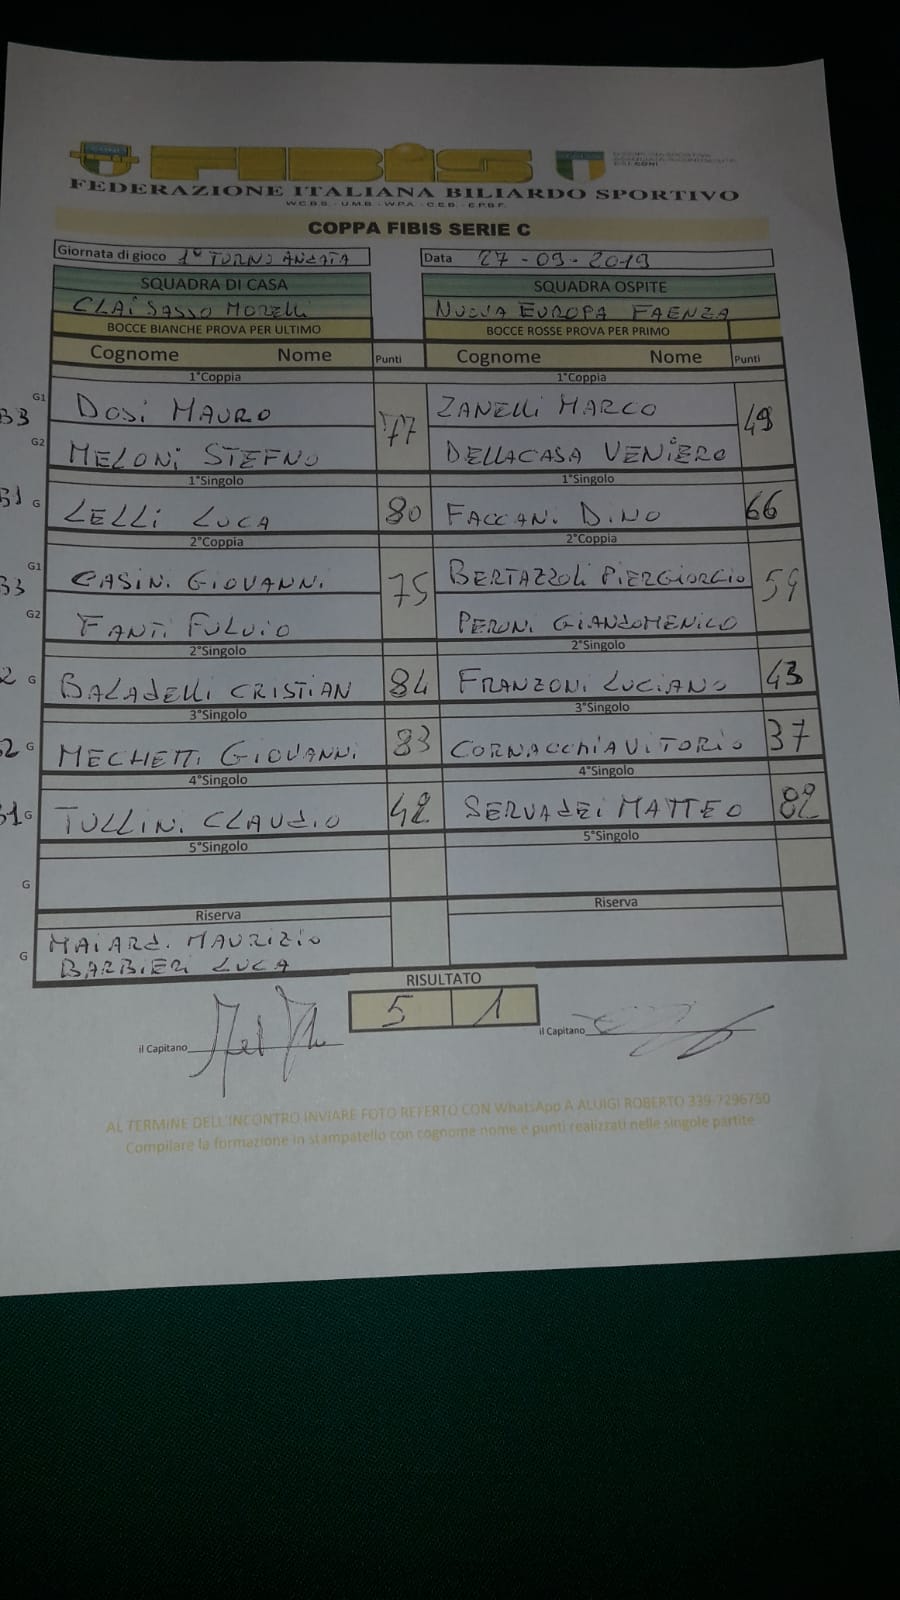 FIBIS
FEDERAZIONE ITALIANA BILIARDO SPORTIVO
W.C.B.S. - U.M.B. - W.P.A. - C.E.B. - E.P.B.F.
COPPA FIBIS SERIE C
Giornata di gioco 1° TURNO ANDATA Data 27-09-2019
SQUADRA DI CASA SQUADRA OSPITE
CLAI SASSO MORELLI NUOVA EUROPA FAENZA
BOCCE BIANCHE PROVA PER ULTIMO BOCCE ROSSE PROVA PER PRIMO
Cognome Nome Punti Cognome Nome Punti
1°Coppia 1°Coppia
G1 DOSI MAURO ZANELLI MARCO
B3 77 49
G2 MELONI STEFNO DELLACASA VENIERO
1°Singolo 1°Singolo
B1 G LELLI LUCA 80 FACCANI DINO 66
2°Coppia 2°Coppia
G1 CASINI GIOVANNI BERTAZZOLI PIERGIORGIO
B3 75 59
G2 FANTI FULVIO PERONI GIANDOMENICO
2°Singolo 2°Singolo
2 G BALADELLI CRISTIAN 84 FRANZONI LUCIANO 43
3°Singolo 3°Singolo
2 G MECHETTI GIOVANNI 83 CORNACCHIA VITORIO 37
4°Singolo 4°Singolo
1 G TULLINI CLAUDIO 42 SERVADEI MATTEO 82
5°Singolo 5°Singolo
G
Riserva Riserva
MAIARDI MAURIZIO
G BARBIERI LUCA
RISULTATO
5 1
il Capitano il Capitano
AL TERMINE DELL'INCONTRO INVIARE FOTO REFERTO CON WhatsApp A ALUIGI ROBERTO 339-7296750
Compilare la formazione in stampatello con cognome nome e punti realizzati nelle singole partite